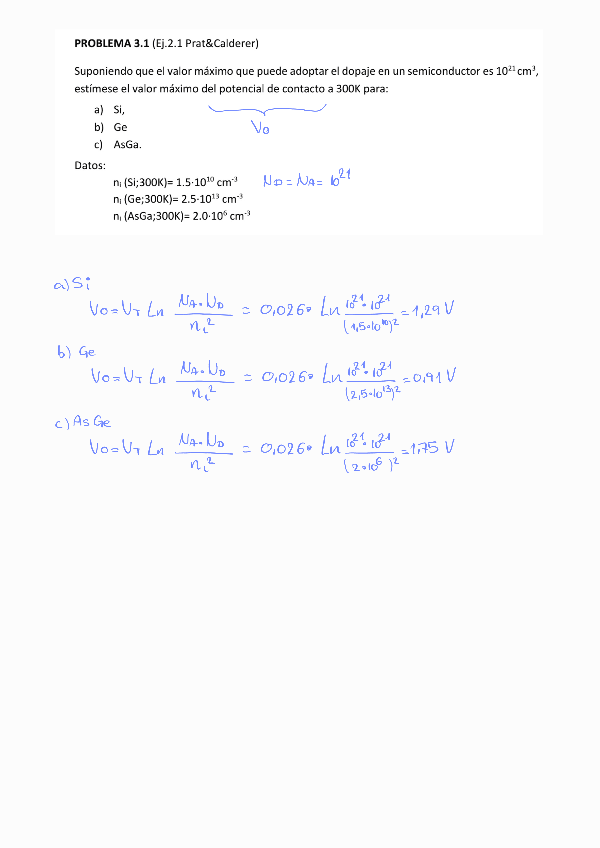 PROBLEMA 3.1 (Ej.2.1 Prat&Calderer)
Suponiendo que el valor máximo que puede adoptar el dopaje en un semiconductor es 10²¹ cm³,
estímese el valor máximo del potencial de contacto a 300K para:
a) Si,
b) Ge
Vo
c) AsGa.
Datos:
nᵢ (Si;300K)= 1.5·10¹⁰ cm⁻³
ND = NA = 10²¹
nᵢ (Ge;300K)= 2.5·10¹³ cm⁻³
nᵢ (AsGa;300K)= 2.0·10⁶ cm⁻³
a) Si
Vo = VT Ln (NA·ND / nᵢ²) = 0,026· Ln (10²¹·10²¹ / (1,5·10¹⁰)²) = 1,29 V
b) Ge
Vo = VT Ln (NA·ND / nᵢ²) = 0,026· Ln (10²¹·10²¹ / (2,5·10¹³)²) = 0,91 V
c) As Ge
Vo = VT Ln (NA·ND / nᵢ²) = 0,026· Ln (10²¹·10²¹ / (2·10⁶)²) = 1,75 V